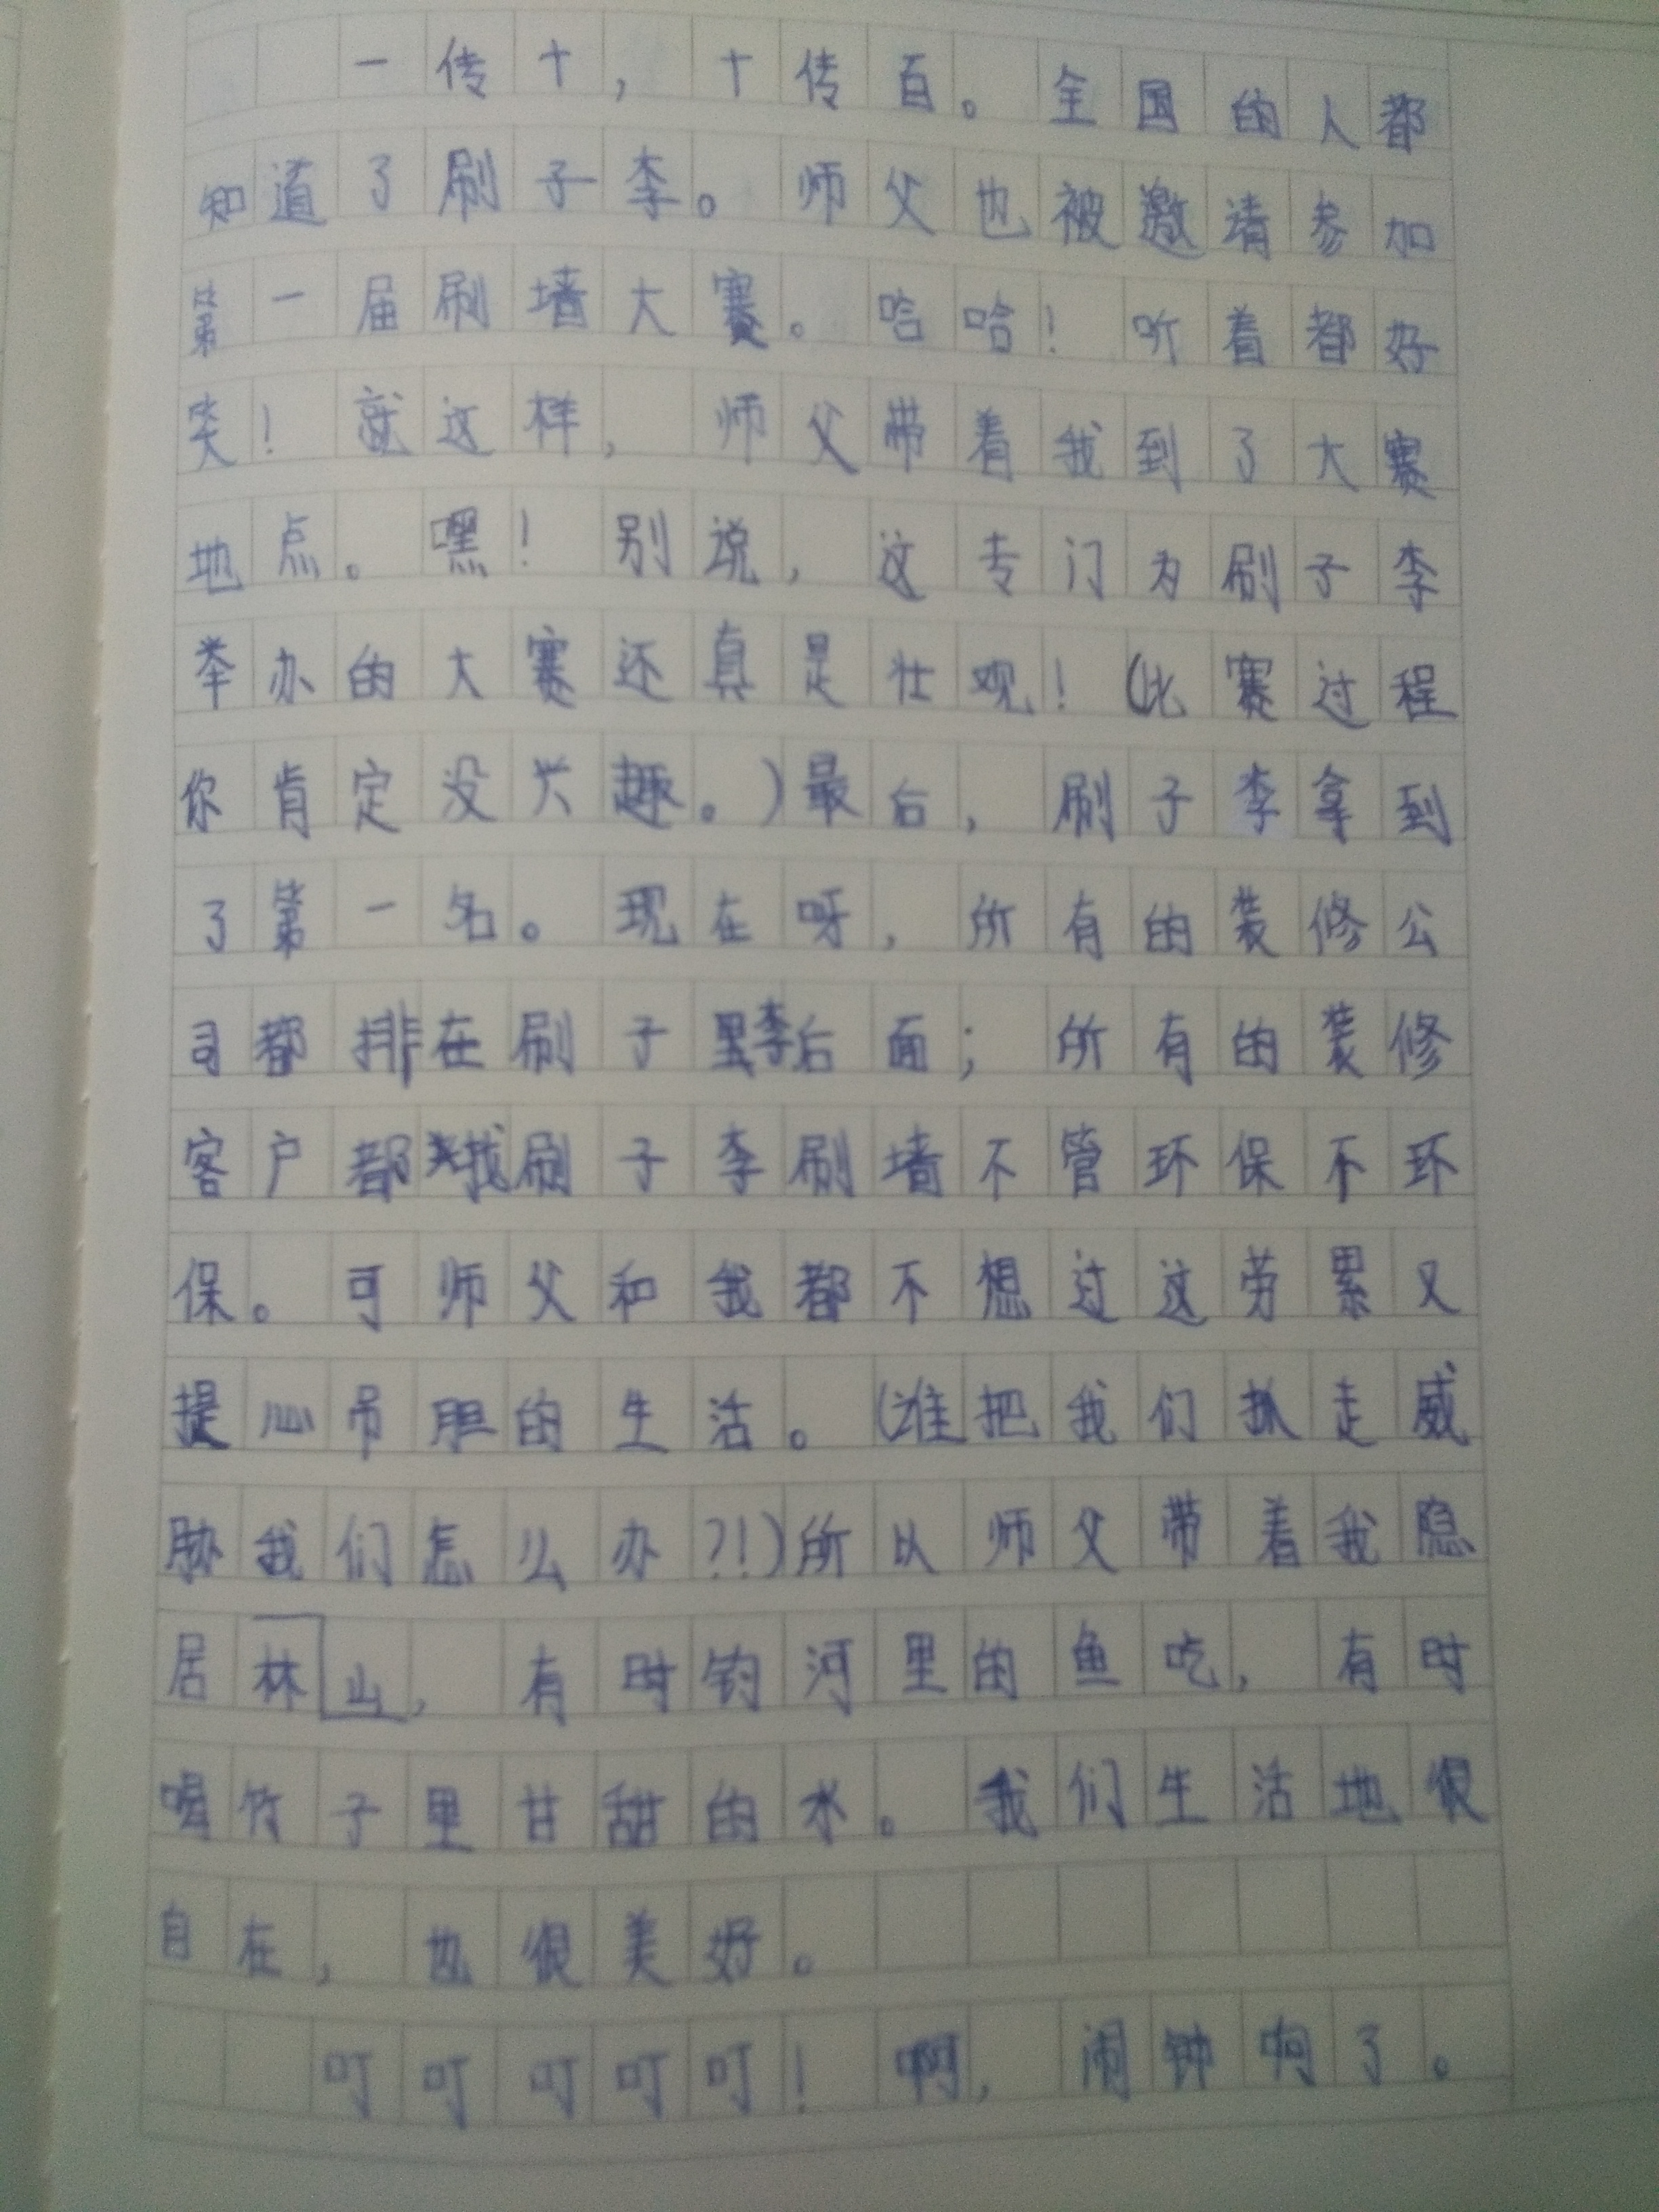 一传十，十传百。全国的人都
知道了刷子李。师父也被邀请参加
第一届刷墙大赛。哈哈！听着都好
笑！就这样，师父带着我到了大赛
地点。嘿！别说，这专门为刷子李
举办的大赛还真是壮观！（比赛过程
你肯定没兴趣。）最后，刷子李拿到
了第一名。现在呀，所有的装修公
司都排在刷子李后面；所有的装修
客户都找刷子李刷墙不管环保不环
保。可师父和我都不想过这劳累又
提心吊胆的生活。（谁把我们抓走威
胁我们怎么办？！）所以师父带着我隐
居林山，有时钓河里的鱼吃，有时
喝竹子里甘甜的水。我们生活地很
自在，也很美好。
叮叮叮叮叮！啊，闹钟响了。